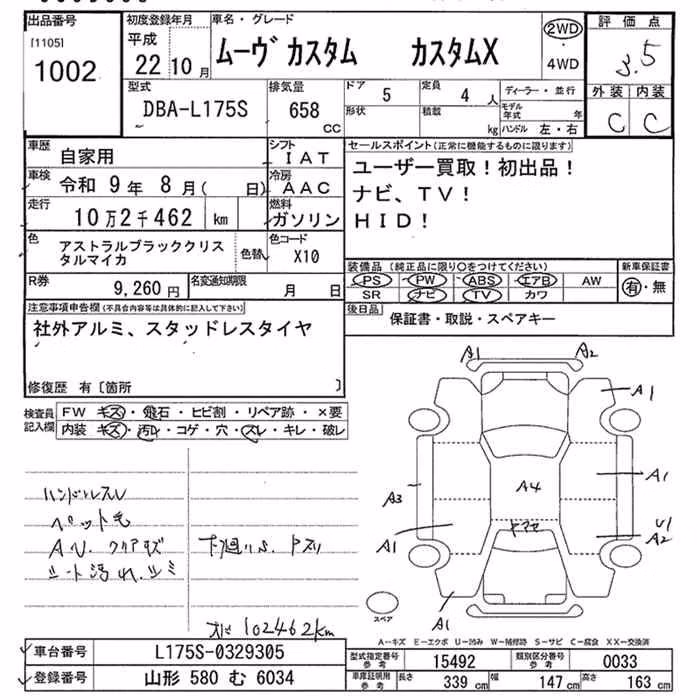 出品番号
[1105]
1002
初度登録年月
平成
22 10 月
車名・グレード
ムーヴ カスタム カスタムX
2WD
・
4WD
評価点
3.5
外装 内装
C C
型式
DBA-L175S
排気量
658
cc
ドア
5
定員
4 人
形状
積載
kg
ディーラー・並行
モデル年式 年
ハンドル 左・右
車歴
自家用
シフト
IAT
車検
令和 9 年 8 月( 日)
冷房
AAC
走行
10万2千462 km
燃料
ガソリン
色
アストラルブラッククリスタルマイカ
色替
色コード
X10
R券
9,260 円
名変通知期限
月 日
セールスポイント(正常に機能するものに限ります)
ユーザー買取!初出品!
ナビ、TV!
HID!
装備品(純正品に限り○をつけてください)
PS PW ABS エアB AW
SR ナビ TV カワ
新車保証書
有・無
後日品
保証書・取説・スペアキー
注意事項申告欄(不具合内容等は具体的に記入して下さい)
社外アルミ、スタッドレスタイヤ
修復歴 有〔箇所 〕
検査員記入欄
FW キズ・飛石・ヒビ割・リペア跡・×要
内装 キズ・汚レ・コゲ・穴・スレ・キレ・破レ
ハンドルスレ
ペット毛
シート汚れ.シミ
下廻りS.
102462km
A1 A2
A1
A3
A4
A1
A1
U1
A2
A1
スペア
A-キズ E-エクボ U-凹み W-補修跡 S-サビ C-腐食 XX-交換済
車台番号
L175S-0329305
登録番号
山形 580 む 6034
型式指定番号
参考
15492
類別区分番号
参考
0033
車庫証明用
参考
長さ
339 cm
幅
147 cm
高さ
163 cm